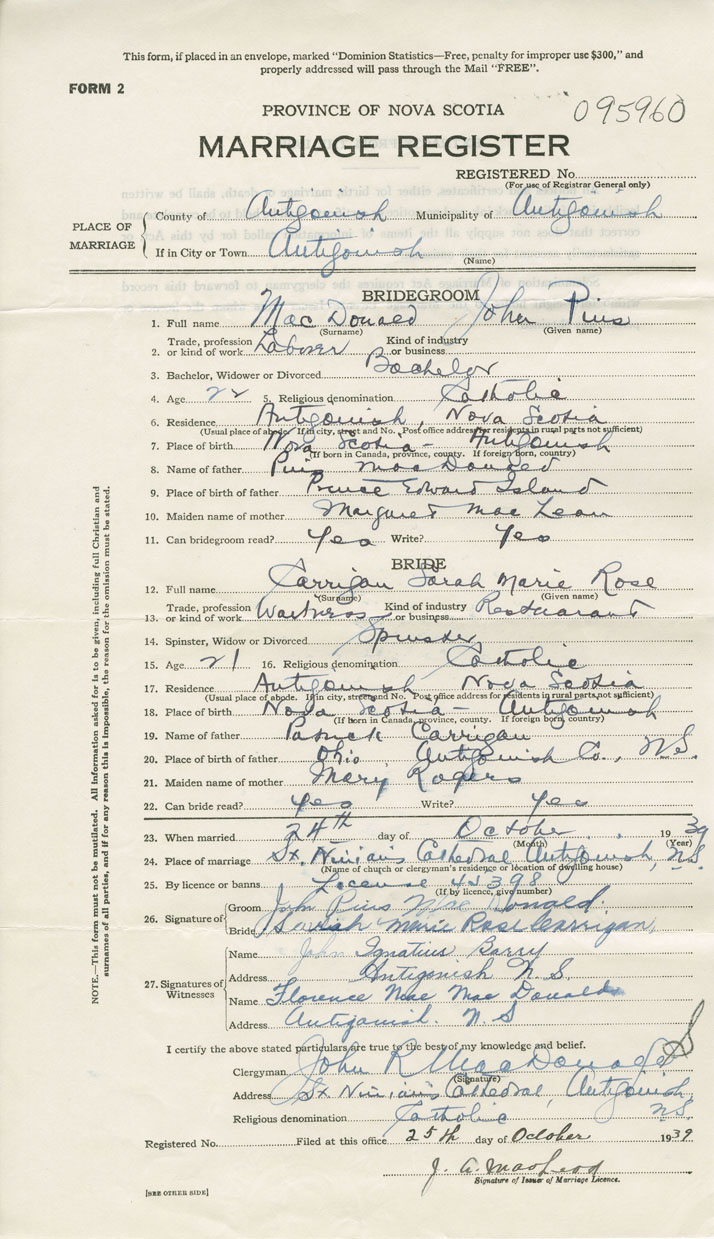 This form, if placed in an envelope, marked "Dominion Statistics—Free, penalty for improper use $300," and
properly addressed will pass through the Mail "FREE".
FORM 2
PROVINCE OF NOVA SCOTIA
095960
MARRIAGE REGISTER
REGISTERED No.
(For use of Registrar General only)
PLACE OF MARRIAGE
County of Antigonish Municipality of Antigonish
If in City or Town Antigonish
(Name)
BRIDEGROOM
1. Full name MacDonald John Pius
(Surname) (Given name)
2. Trade, profession or kind of work Laborer Kind of industry or business
3. Bachelor, Widower or Divorced Bachelor
4. Age 22 5. Religious denomination Catholic
6. Residence Antigonish, Nova Scotia
(Usual place of abode. If in city, street and No. Post office address for residents in rural parts not sufficient)
7. Place of birth Nova Scotia - Antigonish
(If born in Canada, province, county. If foreign born, country)
8. Name of father Pius MacDonald
9. Place of birth of father Prince Edward Island
10. Maiden name of mother Margaret MacLean
11. Can bridegroom read? Yes Write? Yes
BRIDE
12. Full name Carrigan Sarah Marie Rose
(Surname) (Given name)
13. Trade, profession or kind of work Waitress Kind of industry or business Restaurant
14. Spinster, Widow or Divorced Spinster
15. Age 21 16. Religious denomination Catholic
17. Residence Antigonish Nova Scotia
(Usual place of abode. If in city, street and No. Post office address for residents in rural parts not sufficient)
18. Place of birth Nova Scotia - Antigonish
(If born in Canada, province, county. If foreign born, country)
19. Name of father Patrick Carrigan
20. Place of birth of father Ohio, Antigonish Co., N.S.
21. Maiden name of mother Mary Rogers
22. Can bride read? Yes Write? Yes
23. When married 24th day of October 1939
(Month) (Year)
24. Place of marriage St. Ninian's Cathedral Antigonish, N.S.
(Name of church or clergyman's residence or location of dwelling house)
25. By licence or banns License 45398
(If by licence, give number)
26. Signature of
Groom John Pius MacDonald.
Bride Sarah Marie Rose Carrigan,
27. Signatures of Witnesses
Name John Ignatius Barry
Address Antigonish N.S.
Name Florence Mae MacDonald
Address Antigonish. N.S
I certify the above stated particulars are true to the best of my knowledge and belief.
Clergyman John R. MacDonald
(Signature)
Address St. Ninian's Cathedral, Antigonish,
N.S.
Religious denomination Catholic
Registered No. Filed at this office 25th day of October 1939
J. A. MacLeod
Signature of Issuer of Marriage Licence.
[SEE OTHER SIDE]
NOTE.—This form must not be mutilated. All information asked for is to be given, including full Christian and
surnames of all parties, and if for any reason this is impossible, the reason for the omission must be stated.